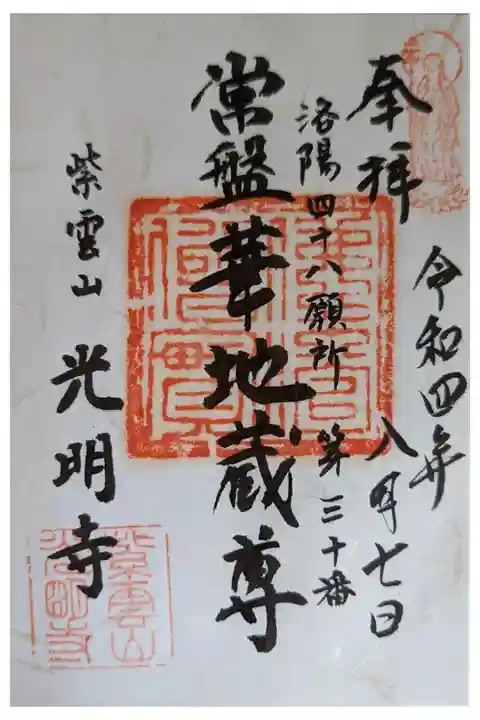 奉拝
令和四年
八月七日
洛陽四十八願所 第三十番
常盤華地蔵尊
紫雲山
光明寺
紫雲山
光明寺